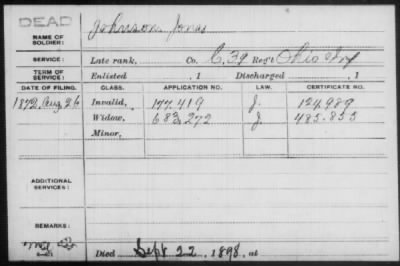 DEAD
NAME OF SOLDIER: Johnson Jonas
SERVICE: Late rank, Co. C. 39 Reg't Ohio Inf
TERM OF SERVICE: Enlisted , 1 Discharged , 1
DATE OF FILING. CLASS. APPLICATION NO. LAW. CERTIFICATE NO.
1872, Aug. 26 Invalid, 177.419 J. 124.989
Widow, 683.272 J. 485.855
Minor,
ADDITIONAL SERVICES:
REMARKS:
Died Sept 22, 1898, at